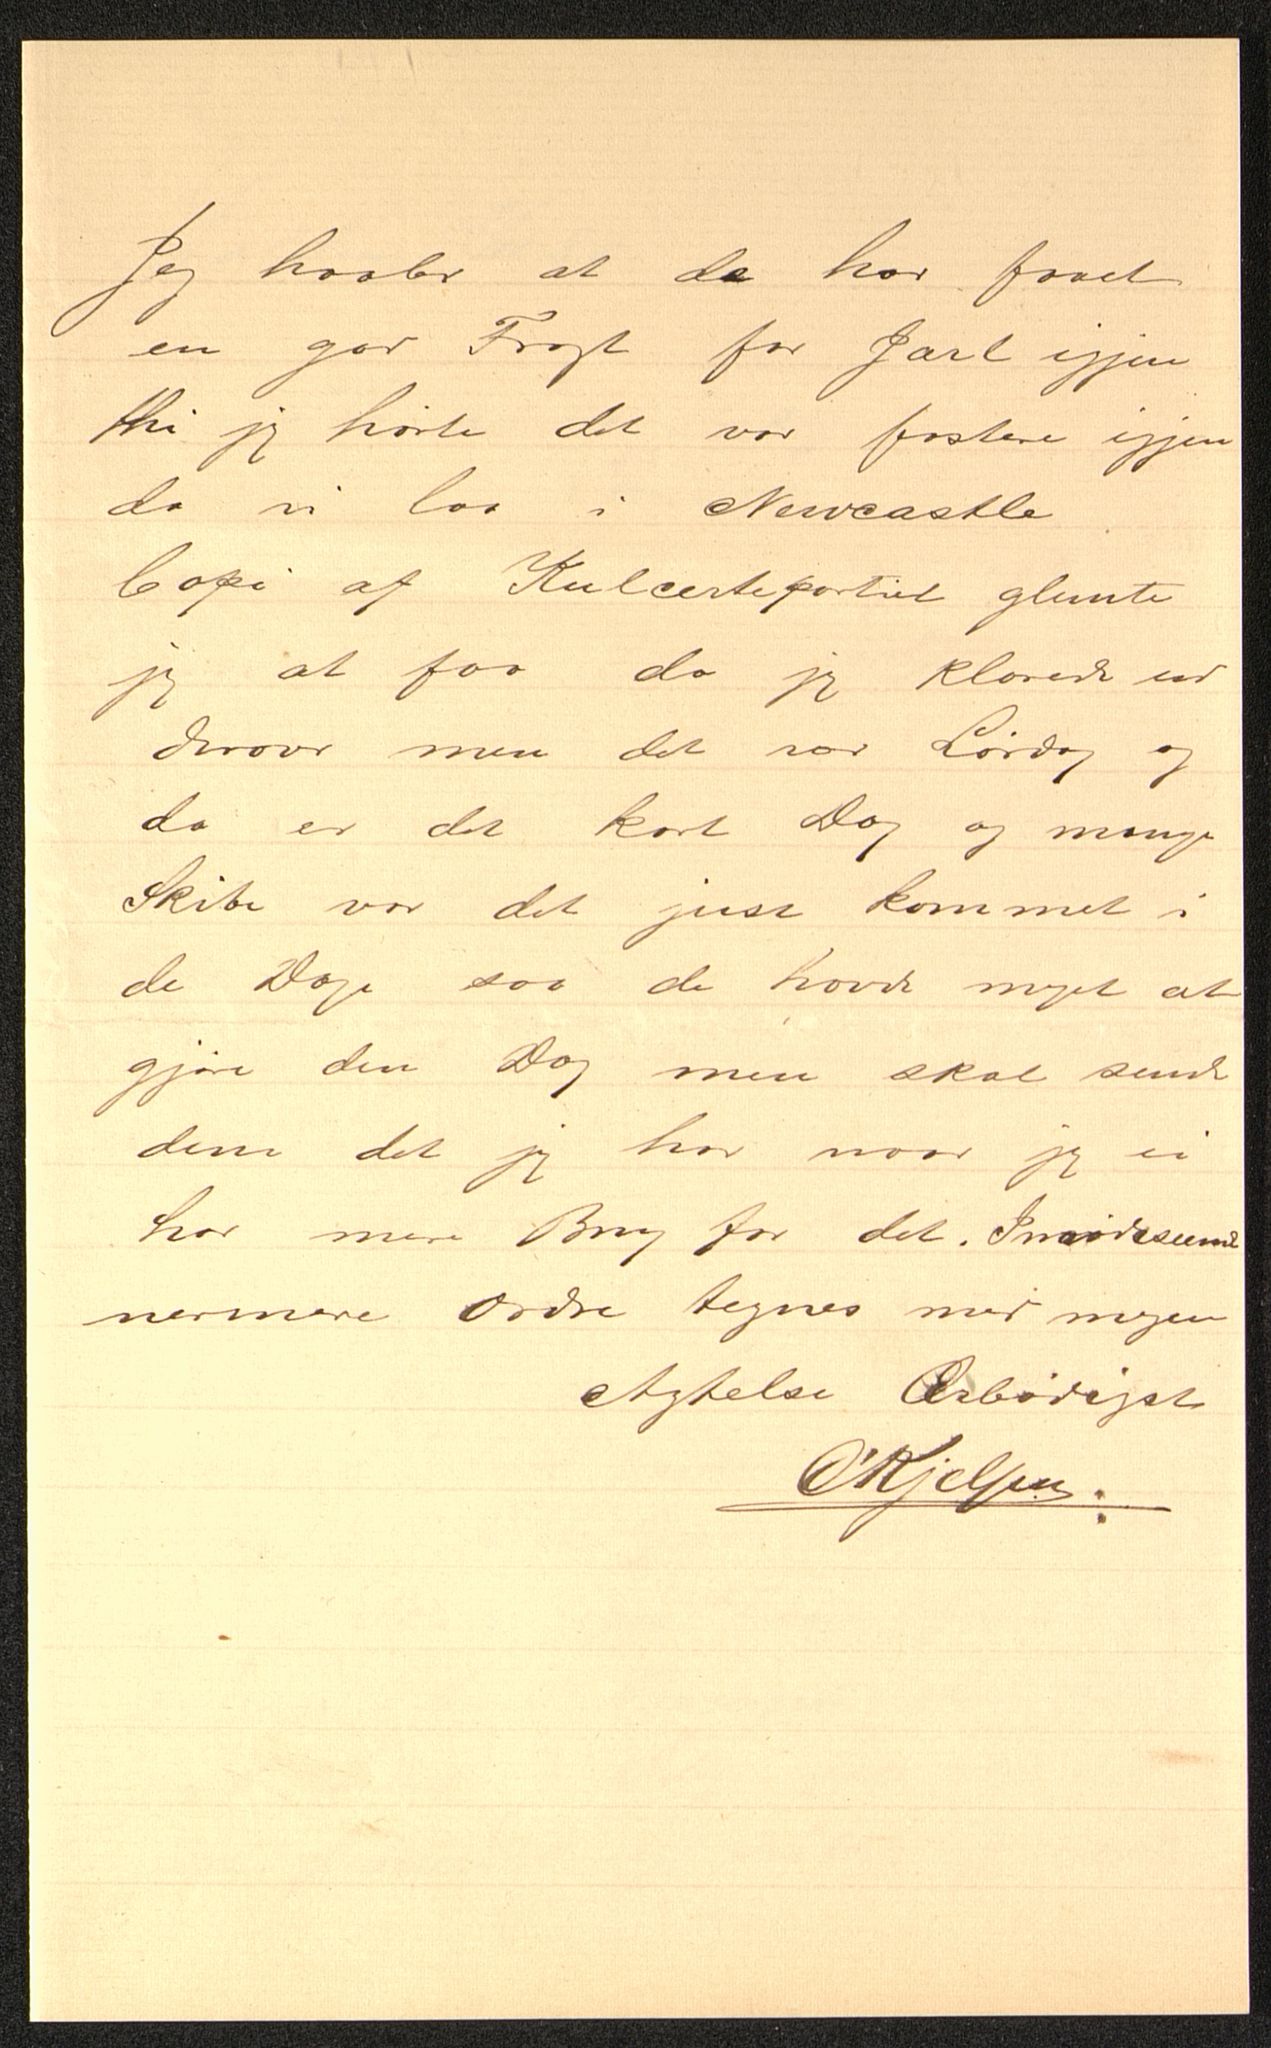 Jeg haaber at de har faaet
en god Fragt for Jarl igjen
thi jeg hørte det var fastere igjen
da vi laa i Newcastle
Copi af Kulcertepartiet glemte
jeg at faa da jeg klarede ud
derover men det var Lørdag og
da er det kort Dag og mange
Skibe var det just kommet i
de Dage saa de havde meget at
gjøre den Dag men skal sende
dem det jeg har naar jeg ei
har mere Brug for det. Imødeseende
nermere Ordre tegnes med megen
Agtelse Ærbødigst